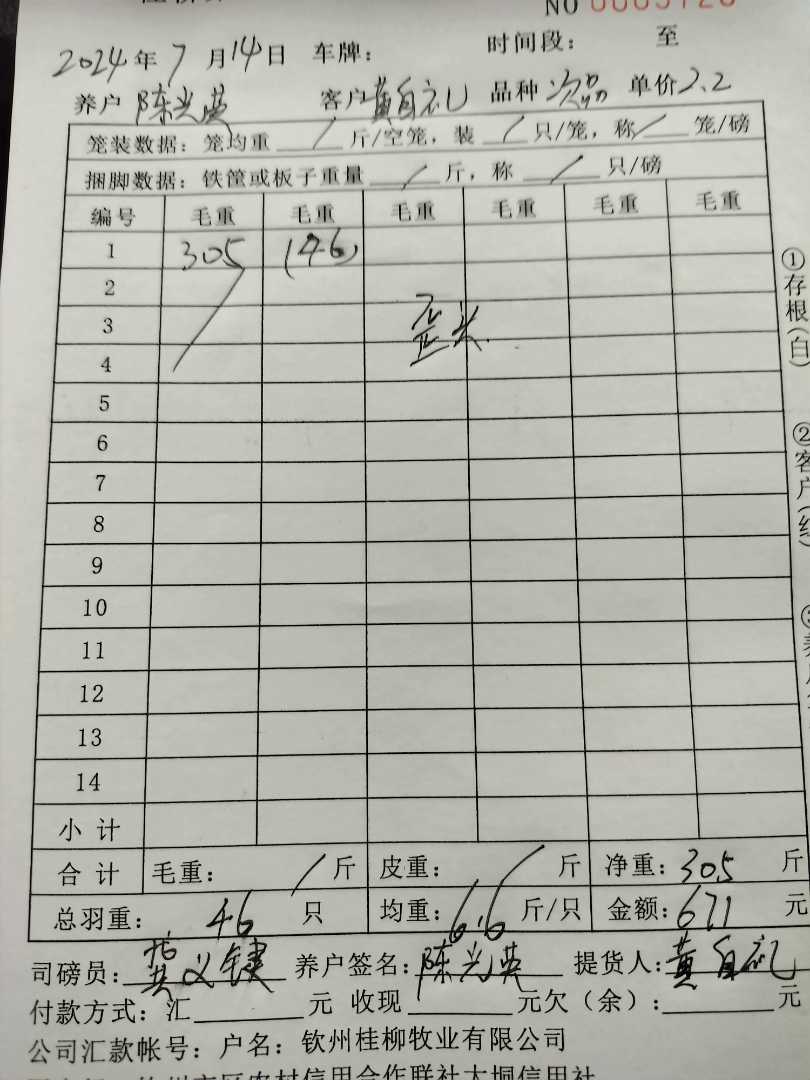 NO 0005720
2024年7月14日 车牌: 时间段: 至
养户 陈光英 客户 黄自礼 品种 次品 单价 2.2
笼装数据: 笼均重 / 斤/空笼, 装 / 只/笼, 称 / 笼/磅
捆脚数据: 铁筐或板子重量 / 斤, 称 / 只/磅
编号 毛重 毛重 毛重 毛重 毛重 毛重
1 305 (46)
2
3 歪头
4
5
6
7
8
9
10
11
12
13
14
小计
合计 毛重: / 斤 皮重: / 斤 净重: 305 斤
总羽重: 46 只 均重: 6.6 斤/只 金额: 671 元
司磅员: 义键 养户签名: 陈光英 提货人: 黄自礼
付款方式: 汇 元 收现 元欠(余): 元
公司汇款帐号: 户名: 钦州桂柳牧业有限公司
①存根(白)
②客户(红)